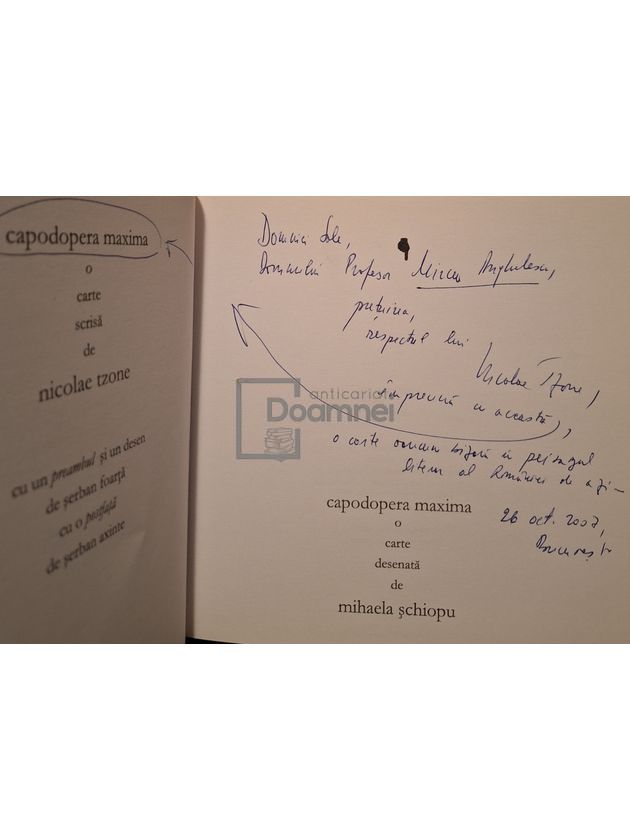 capodopera maxima
o
carte
scrisă
de
nicolae tzone
cu un preambul și un desen
de șerban foarță
cu o postfață
de șerban axinte
Domniei Sale,
Domnului Profesor Mircea Anghelescu,
prețuirea,
respectul lui
Nicolae Tzone,
împreună cu această,
o carte oarecum bizară în peisajul
literar al României de azi –
26 oct. 2007,
București
anticariat
Doamnei
capodopera maxima
o
carte
desenată
de
mihaela șchiopu